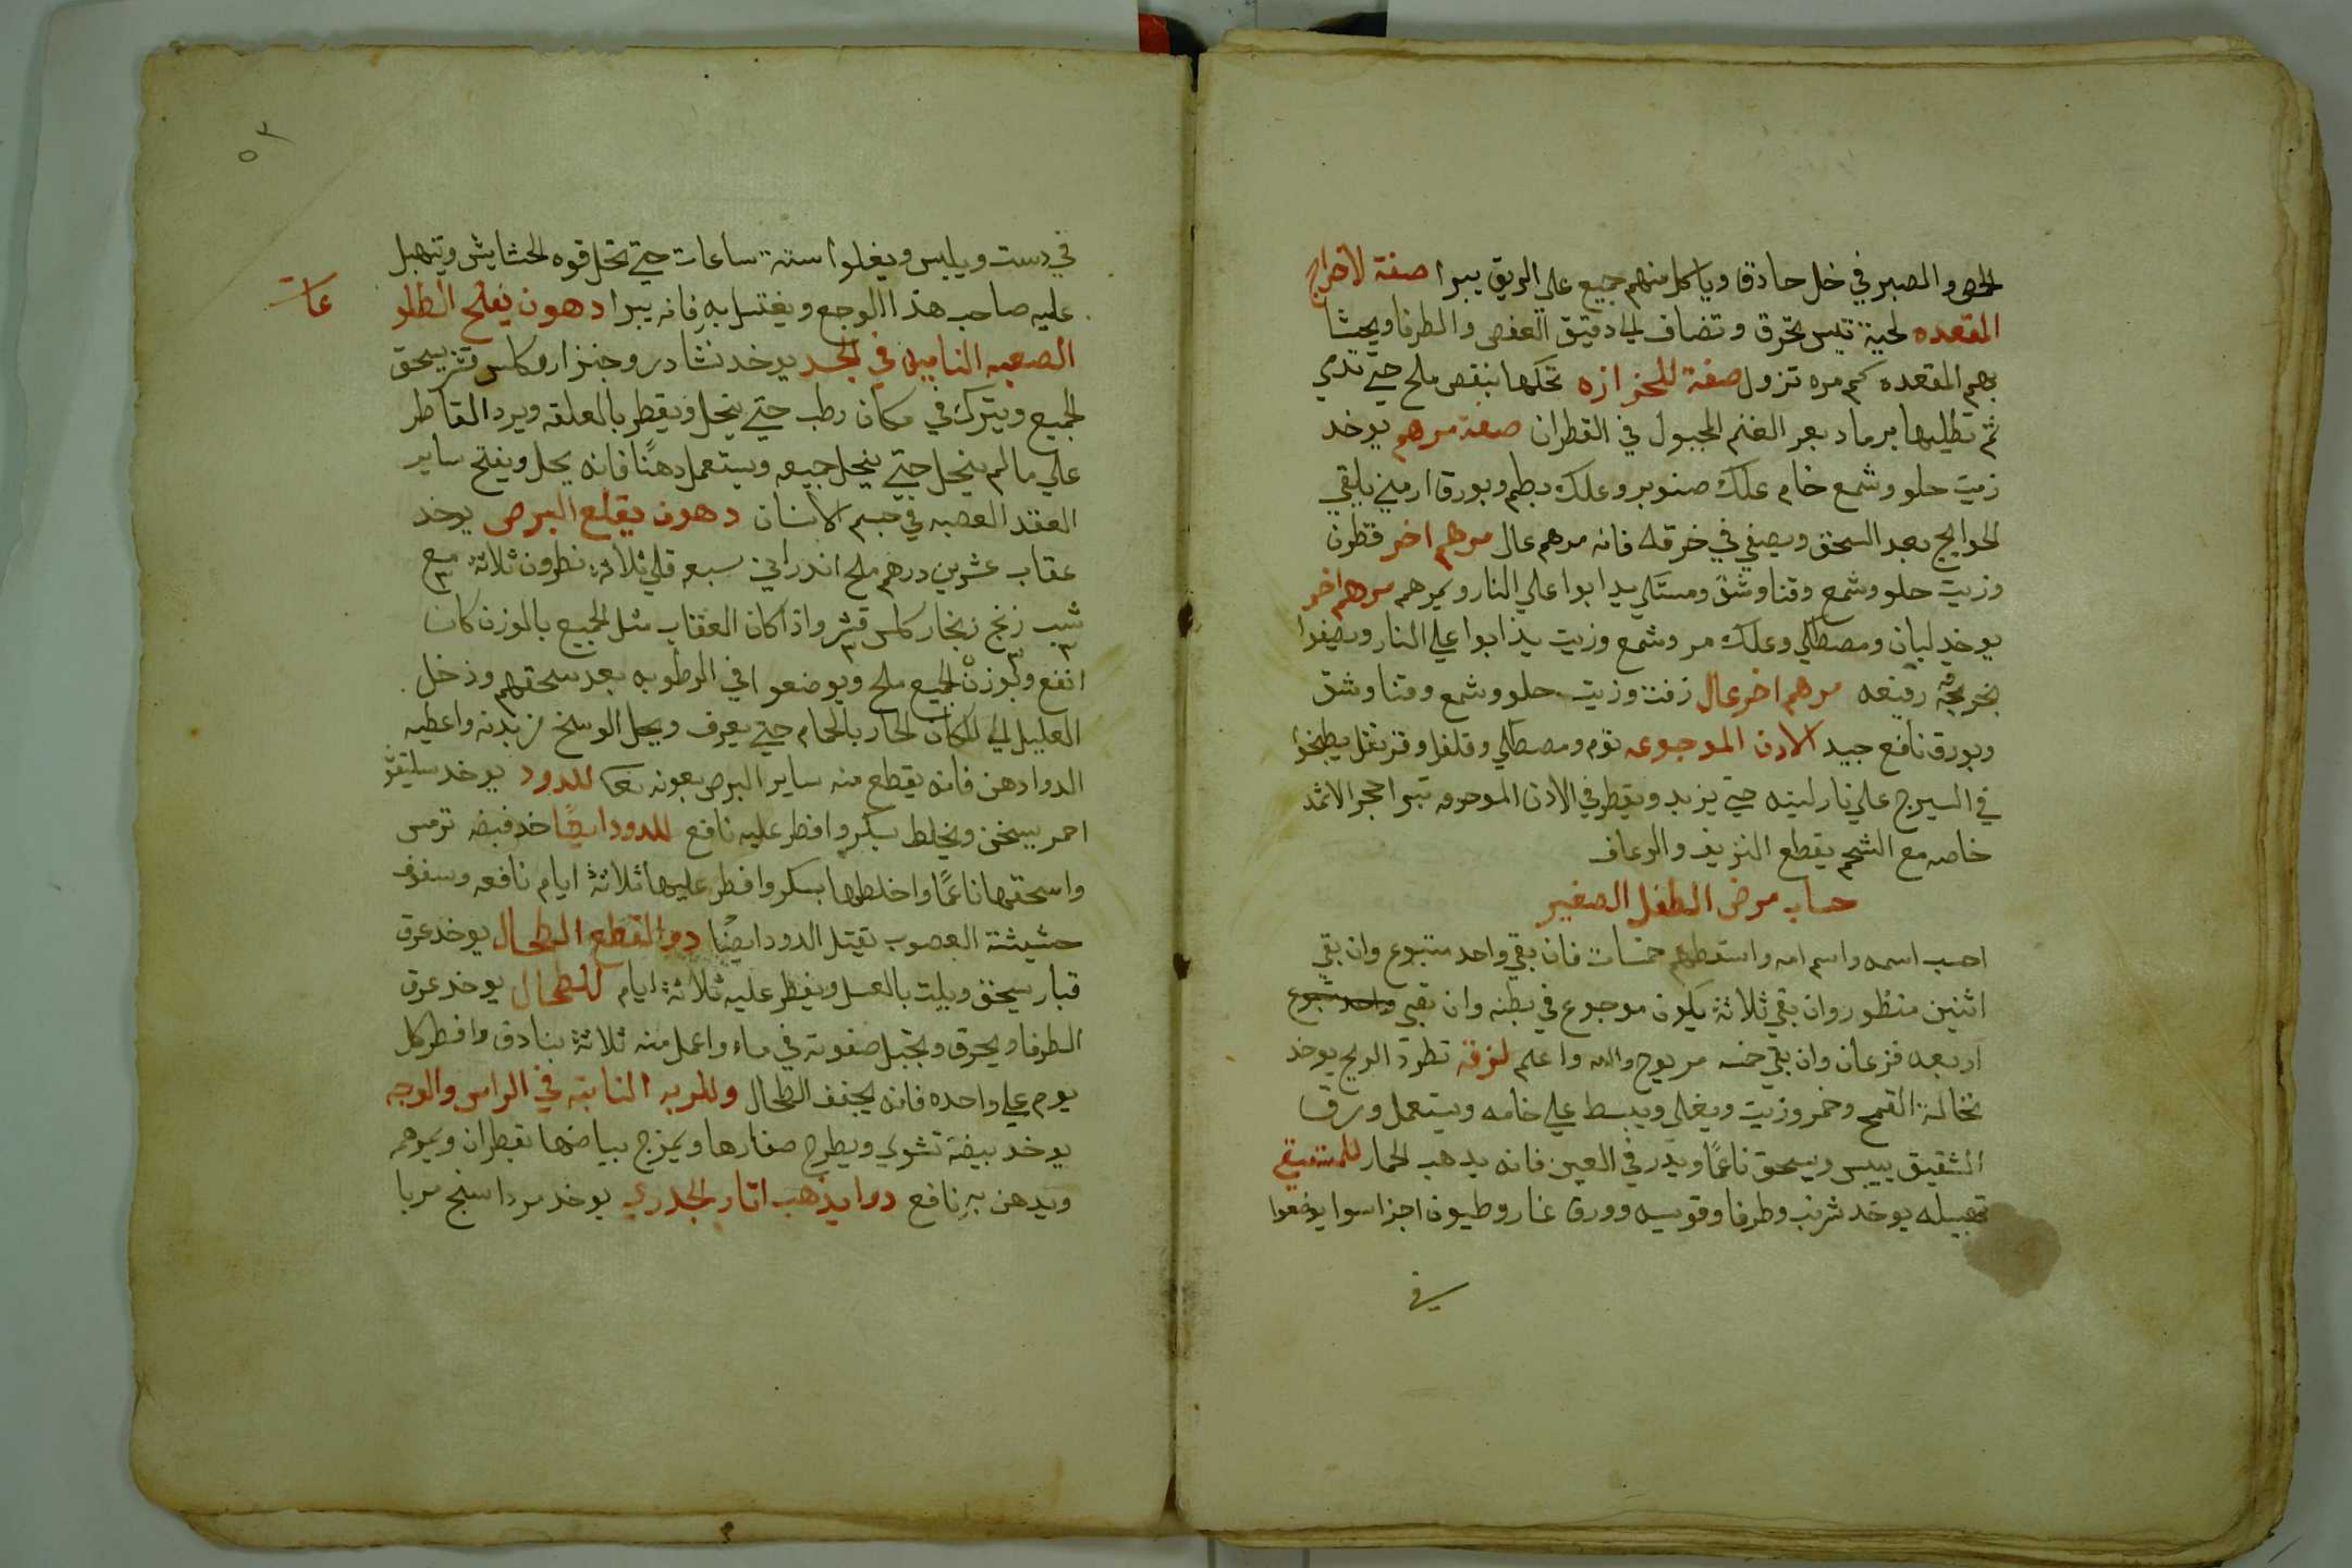 الحص والمصبر في خل حادق وياكل منهم جميع علي الريق يبرا صفة لاخراج
المقعده لحية تيس تحرق وتضاف الي دقيق العفص والطرفا ويحشا
بهم المقعده كم مره تزول صفة للحزازه تحكها بنقص ملح حتي تدمي
ثم تطليها برماد بعر الغنم المجبول في القطران صفة مرهم يوخد
زيت حلو وشمع خام علك صنوبر وعلك بطم وبورق ارمني يلقي
الحوايج بعد السحق ويصفي في خرقه فانه مرهم عال مرهم اخر قطرن
وزيت حلو وشمع وقنا وشق ومستكي يدابوا علي النار ويمرهم مرهم اخر
يوخد لبان ومصطكي وعلك مر وشمع وزيت يذابوا علي النار ويصفوا
بخرقة رفيعه مرهم اخر عال زفت وزيت حلو وشمع وقنا وشق
وبورق نافع جيد الادن الموجوعه توم ومصطكي وفلفل وقرنفل يطبخوا
في السيرج علي نار لينه حتي يزبد ويقطر في الادن الموجوعه تبرا حجر الاثمد
خاصه مع الشحم يقطع النزيف والرعاف
حساب مرض الطفل الصغير
احسب اسمه واسم امه واسقطهم خمسات فان بقي واحد متبوع وان بقي
اثنين منظور وان بقي ثلاثة يكون موجوع في بطنه وان بقي واحد متبوع
اربعه فزعان وان بقي خمسه مريوح والله واعلم لزقة تطرد الريح يوخد
نخالة القمح وخمر وزيت ويغلي ويبسط علي خامه ويستعمل ورق
الشقيق ييبس ويسحق ناعمًا ويدر في العين فانه يدهب الحمار للمستسقي
تهبيله يوخد شرنب وطرفا وقويسه وورق غار وطيون اجزا سوا يوضعوا
في
في دست ويلبس ويغلوا ستة ساعات حتي تحل قوه الحشايش ويتهبل
عليه صاحب هذا الوجع ويغتسل به فانه يبرا دهون يفتح الطلو
عات
الصعبه النابته في الجسد يوخد نشادر وجنزار وكلس قشر يسحق
الجميع ويترك في مكان رطب حتي ينحل ويقطر بالعلقه ويرد القاطر
علي ما لم ينحل حتي ينحل جميعه ويستعمل دهنًا فانه يحل ويفتح ساير
العقد العصبه في جسم الانسان دهون يقلع البرص يوخد
عقاب عشرين درهم ملح اندراني سبعه قلي ثلاثة نطرون ثلاثة مع
شب زنج زنجار كلس قشر واذا كان العقاب مثل الجميع بالوزن كان
٣ ٣ ٣
انفع وبوزن الجميع ملح ويوضعوا في الرطوبه بعد سحقهم ودخل
العليل الي المكان الحار بالحمام حتي يعرق ويحل الوسخ من بدنه واعطيه
الدوا دهن فانه يقطع منه ساير البرص بعونه للدود يوخد سليقون
احمر يسحق ويخلط بسكر وافطر عليه نافع للدود ايضًا خد قبضه ترمس
واسحقها ناعمًا واخلطها بسكر وافطر عليها ثلاثة ايام نافعه وسفوف
حشيشة العصوب تقتل الدود ايضًا دوا لقطع الطحال يوخد عرق
قبار يسحق ويلت بالعسل ويفطر عليه ثلاثة ايام للطحال يوخد عرق
الطرفا ويحرق ويجبل صفوته في ماء واعمل منه ثلاثة بنادق وافطر كل
يوم علي واحده فانه يخفف الطحال وللمريه النابته في الراس والوجه
يوخد بيضة تشوي ويطرح صفارها ويمزج بياضها بقطران ويمرهم
ويدهن به نافع دوا يذهب اثار الجدري يوخد مرداسنج مربا